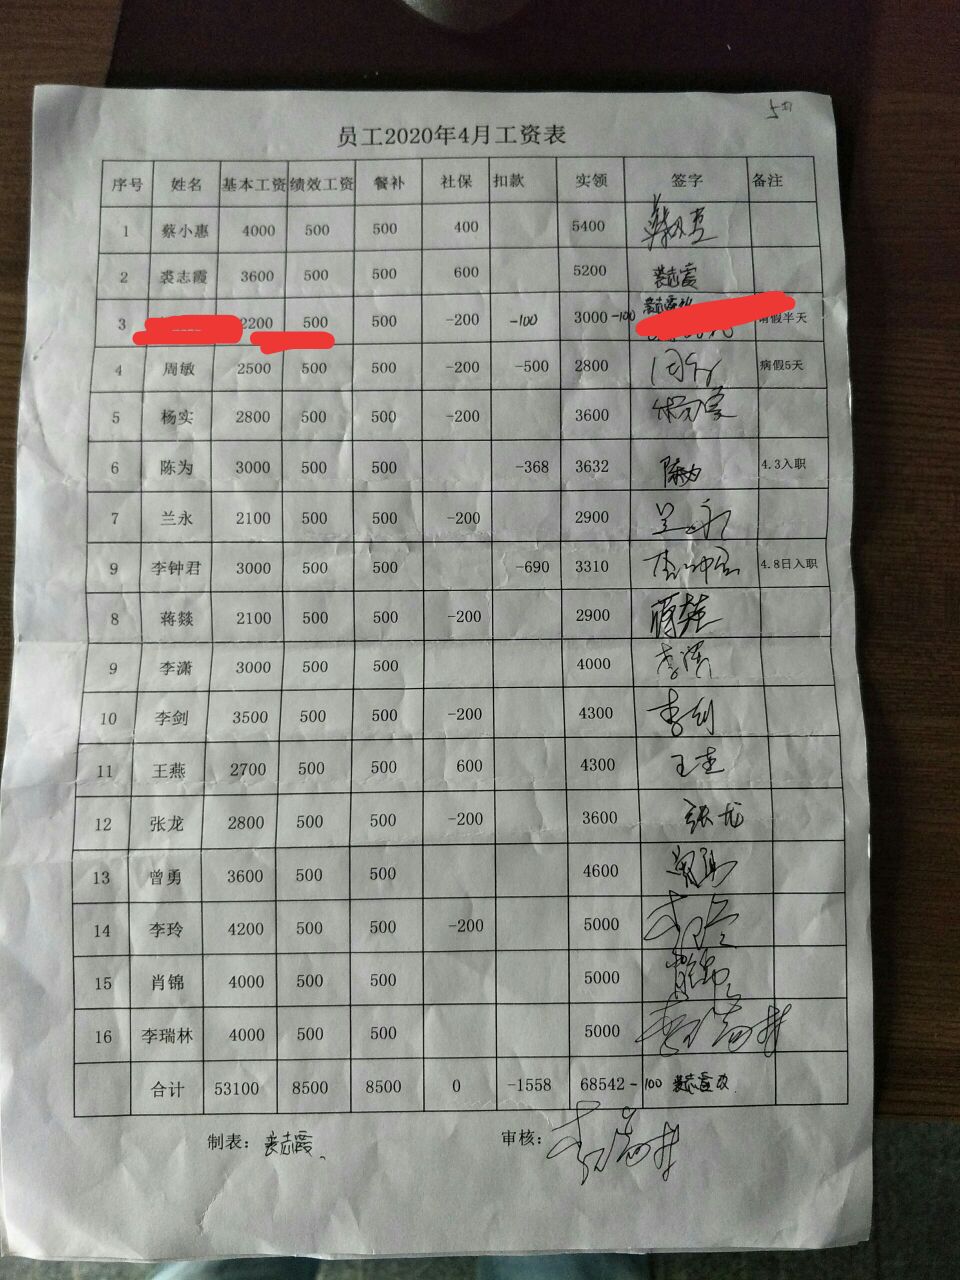 员工2020年4月工资表
序号 姓名 基本工资 绩效工资 餐补 社保 扣款 实领 签字 备注
1 蔡小惠 4000 500 500 400 5400
2 裘志霞 3600 500 500 600 5200 裘志霞
3 2200 500 500 -200 -100 3000 -100 裘志霞改 请假半天
4 周敏 2500 500 500 -200 -500 2800 周敏 病假5天
5 杨实 2800 500 500 -200 3600 杨实
6 陈为 3000 500 500 -368 3632 陈为 4.3入职
7 兰永 2100 500 500 -200 2900 兰永
9 李钟君 3000 500 500 -690 3310 李钟君 4.8日入职
8 蒋燚 2100 500 500 -200 2900
9 李潇 3000 500 500 4000 李潇
10 李剑 3500 500 500 -200 4300 李剑
11 王燕 2700 500 500 600 4300
12 张龙 2800 500 500 -200 3600 张龙
13 曾勇 3600 500 500 4600 曾勇
14 李玲 4200 500 500 -200 5000 李玲
15 肖锦 4000 500 500 5000 肖锦
16 李瑞林 4000 500 500 5000 李瑞林
合计 53100 8500 8500 0 -1558 68542 -100 裘志霞改
制表：裘志霞 审核：李瑞林